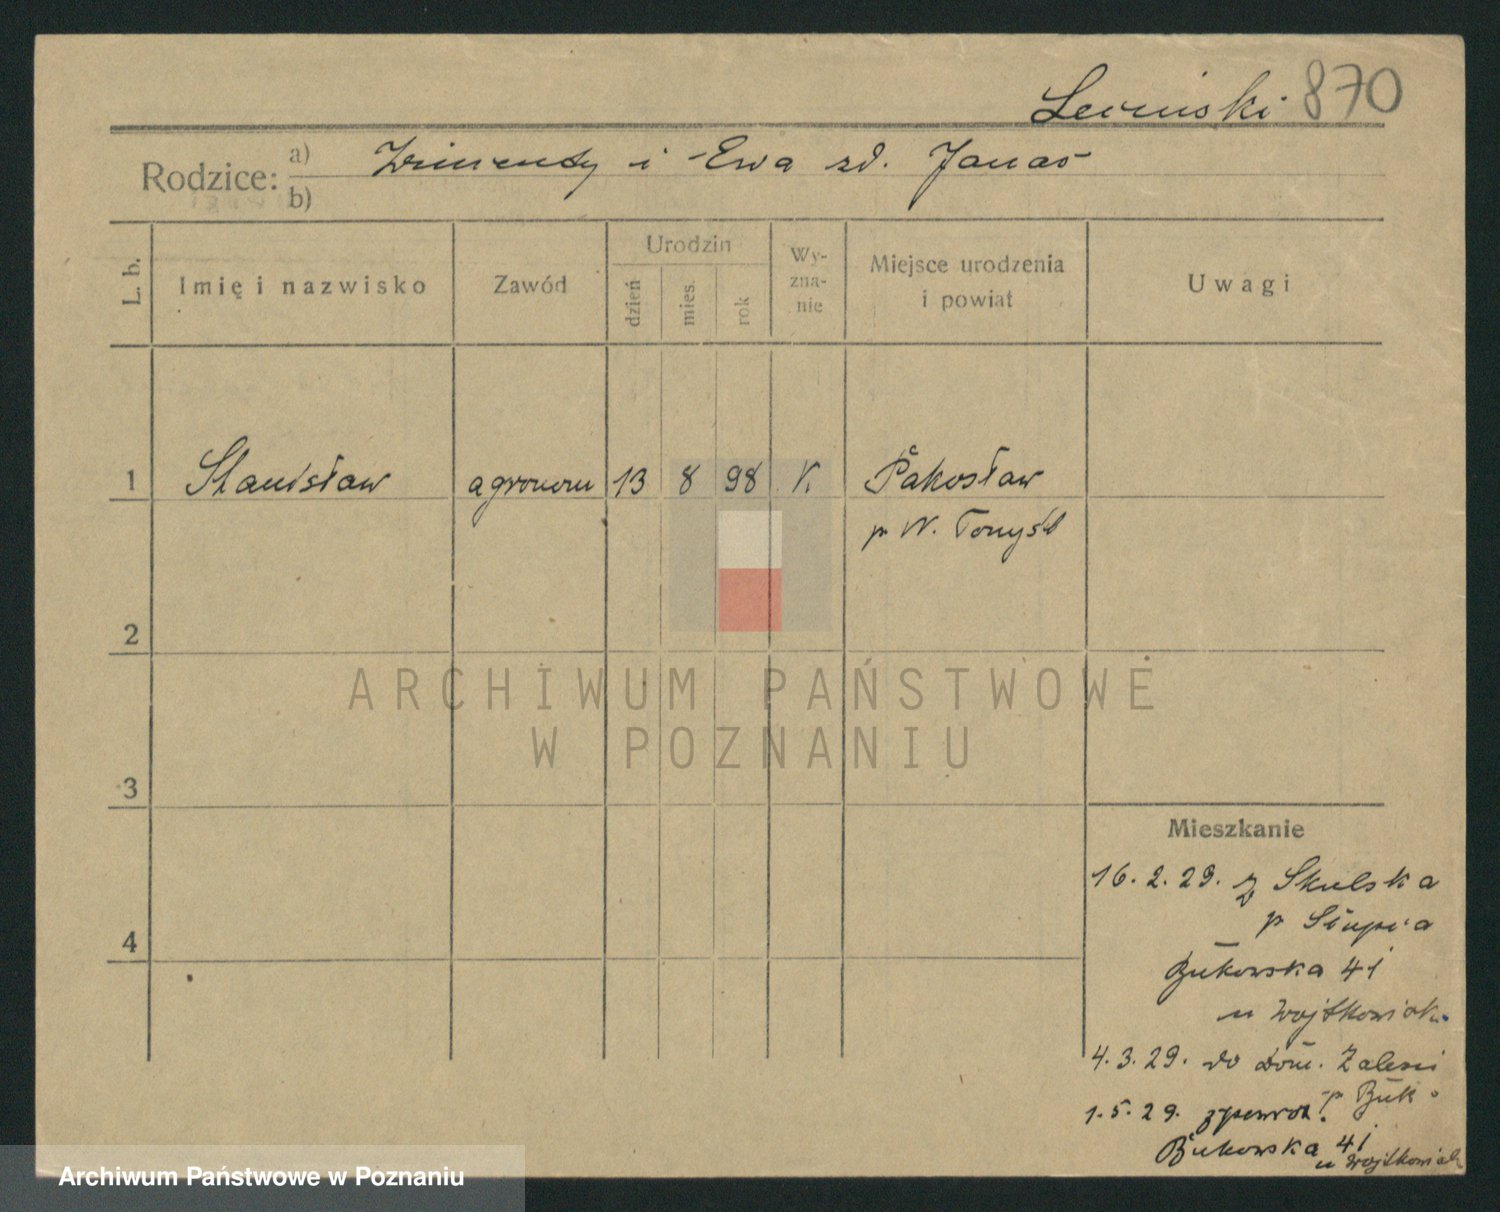 870
Rodzice: a) i Ewa zd. Janas
b)
L. b.
Imię i nazwisko
Zawód
Urodzin
dzień
mies.
rok
Wy-
zna-
nie
Miejsce urodzenia
i powiat
Uwagi
1 Stanisław agronom 13 8 98 K. Pakosław
p N. Tomyśl
2
3
4
ARCHIWUM PAŃSTWOWE
W POZNANIU
Mieszkanie
16. 2. 29. z Skulska
p Słupca
Bukowska 41
u Wojtkowiak
4. 3. 29. do dom. Zalesie
p Buk.
1. 5. 29. zpowrot.
Bukowska 41
u Wojtkowiak
Archiwum Państwowe w Poznaniu